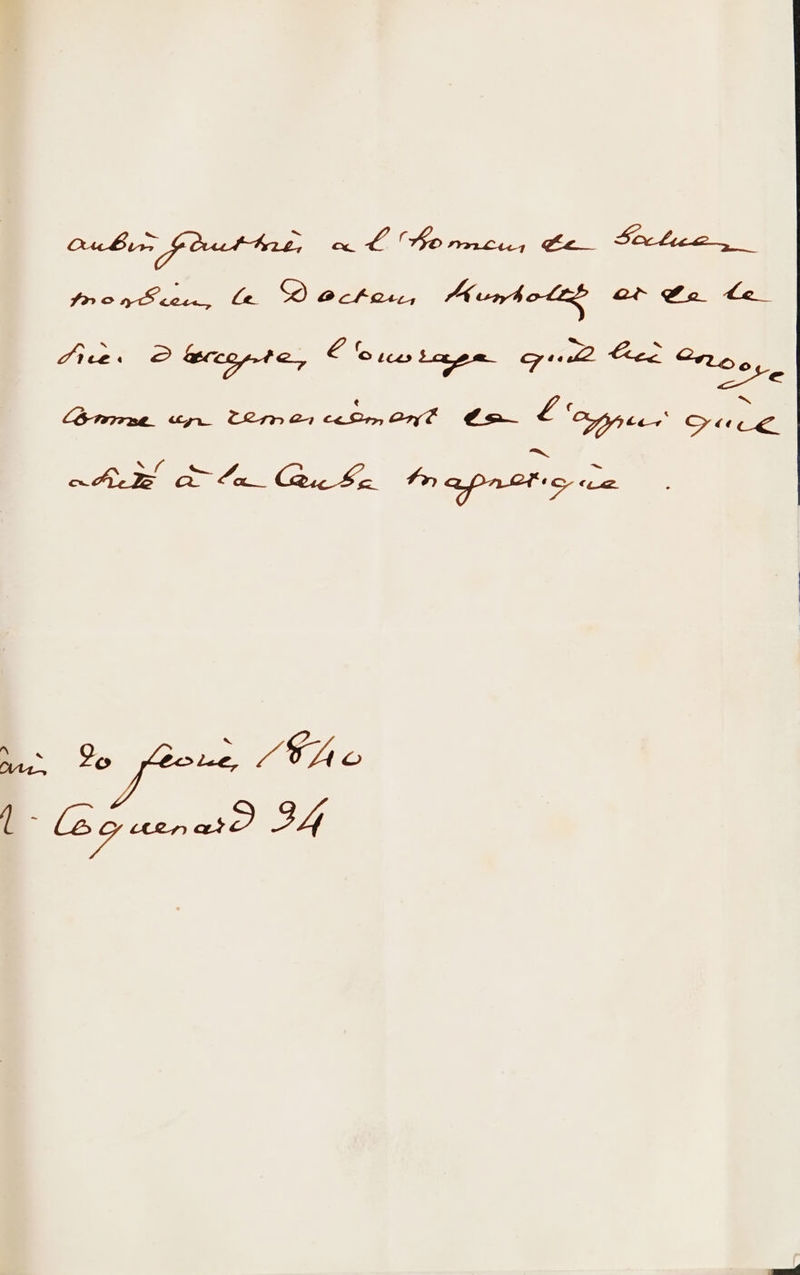 aubin gauthier, a l'honneur de Saluer
monsieur le Docteur Munholtz et de le
prier D'accepter, l'ouvrage qu'il lui envoye
Comme un remerciement de l'appui qu'il
a prêté à la Cause magnetique .
20 fevrier 1840
Coquenard 34